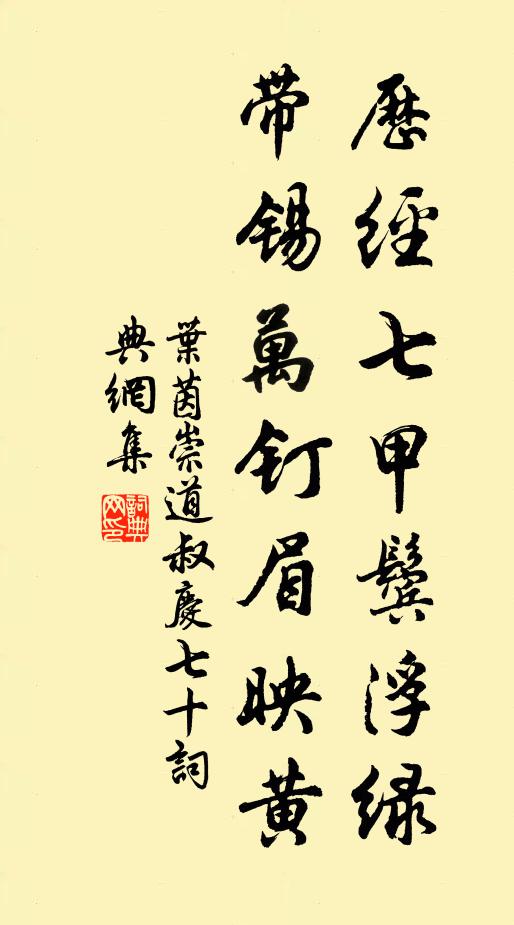 歷經七甲鬢浮綠
帶錫萬釘眉映黃
葉茵崇道叔慶七十詞
典網集
詞典網印